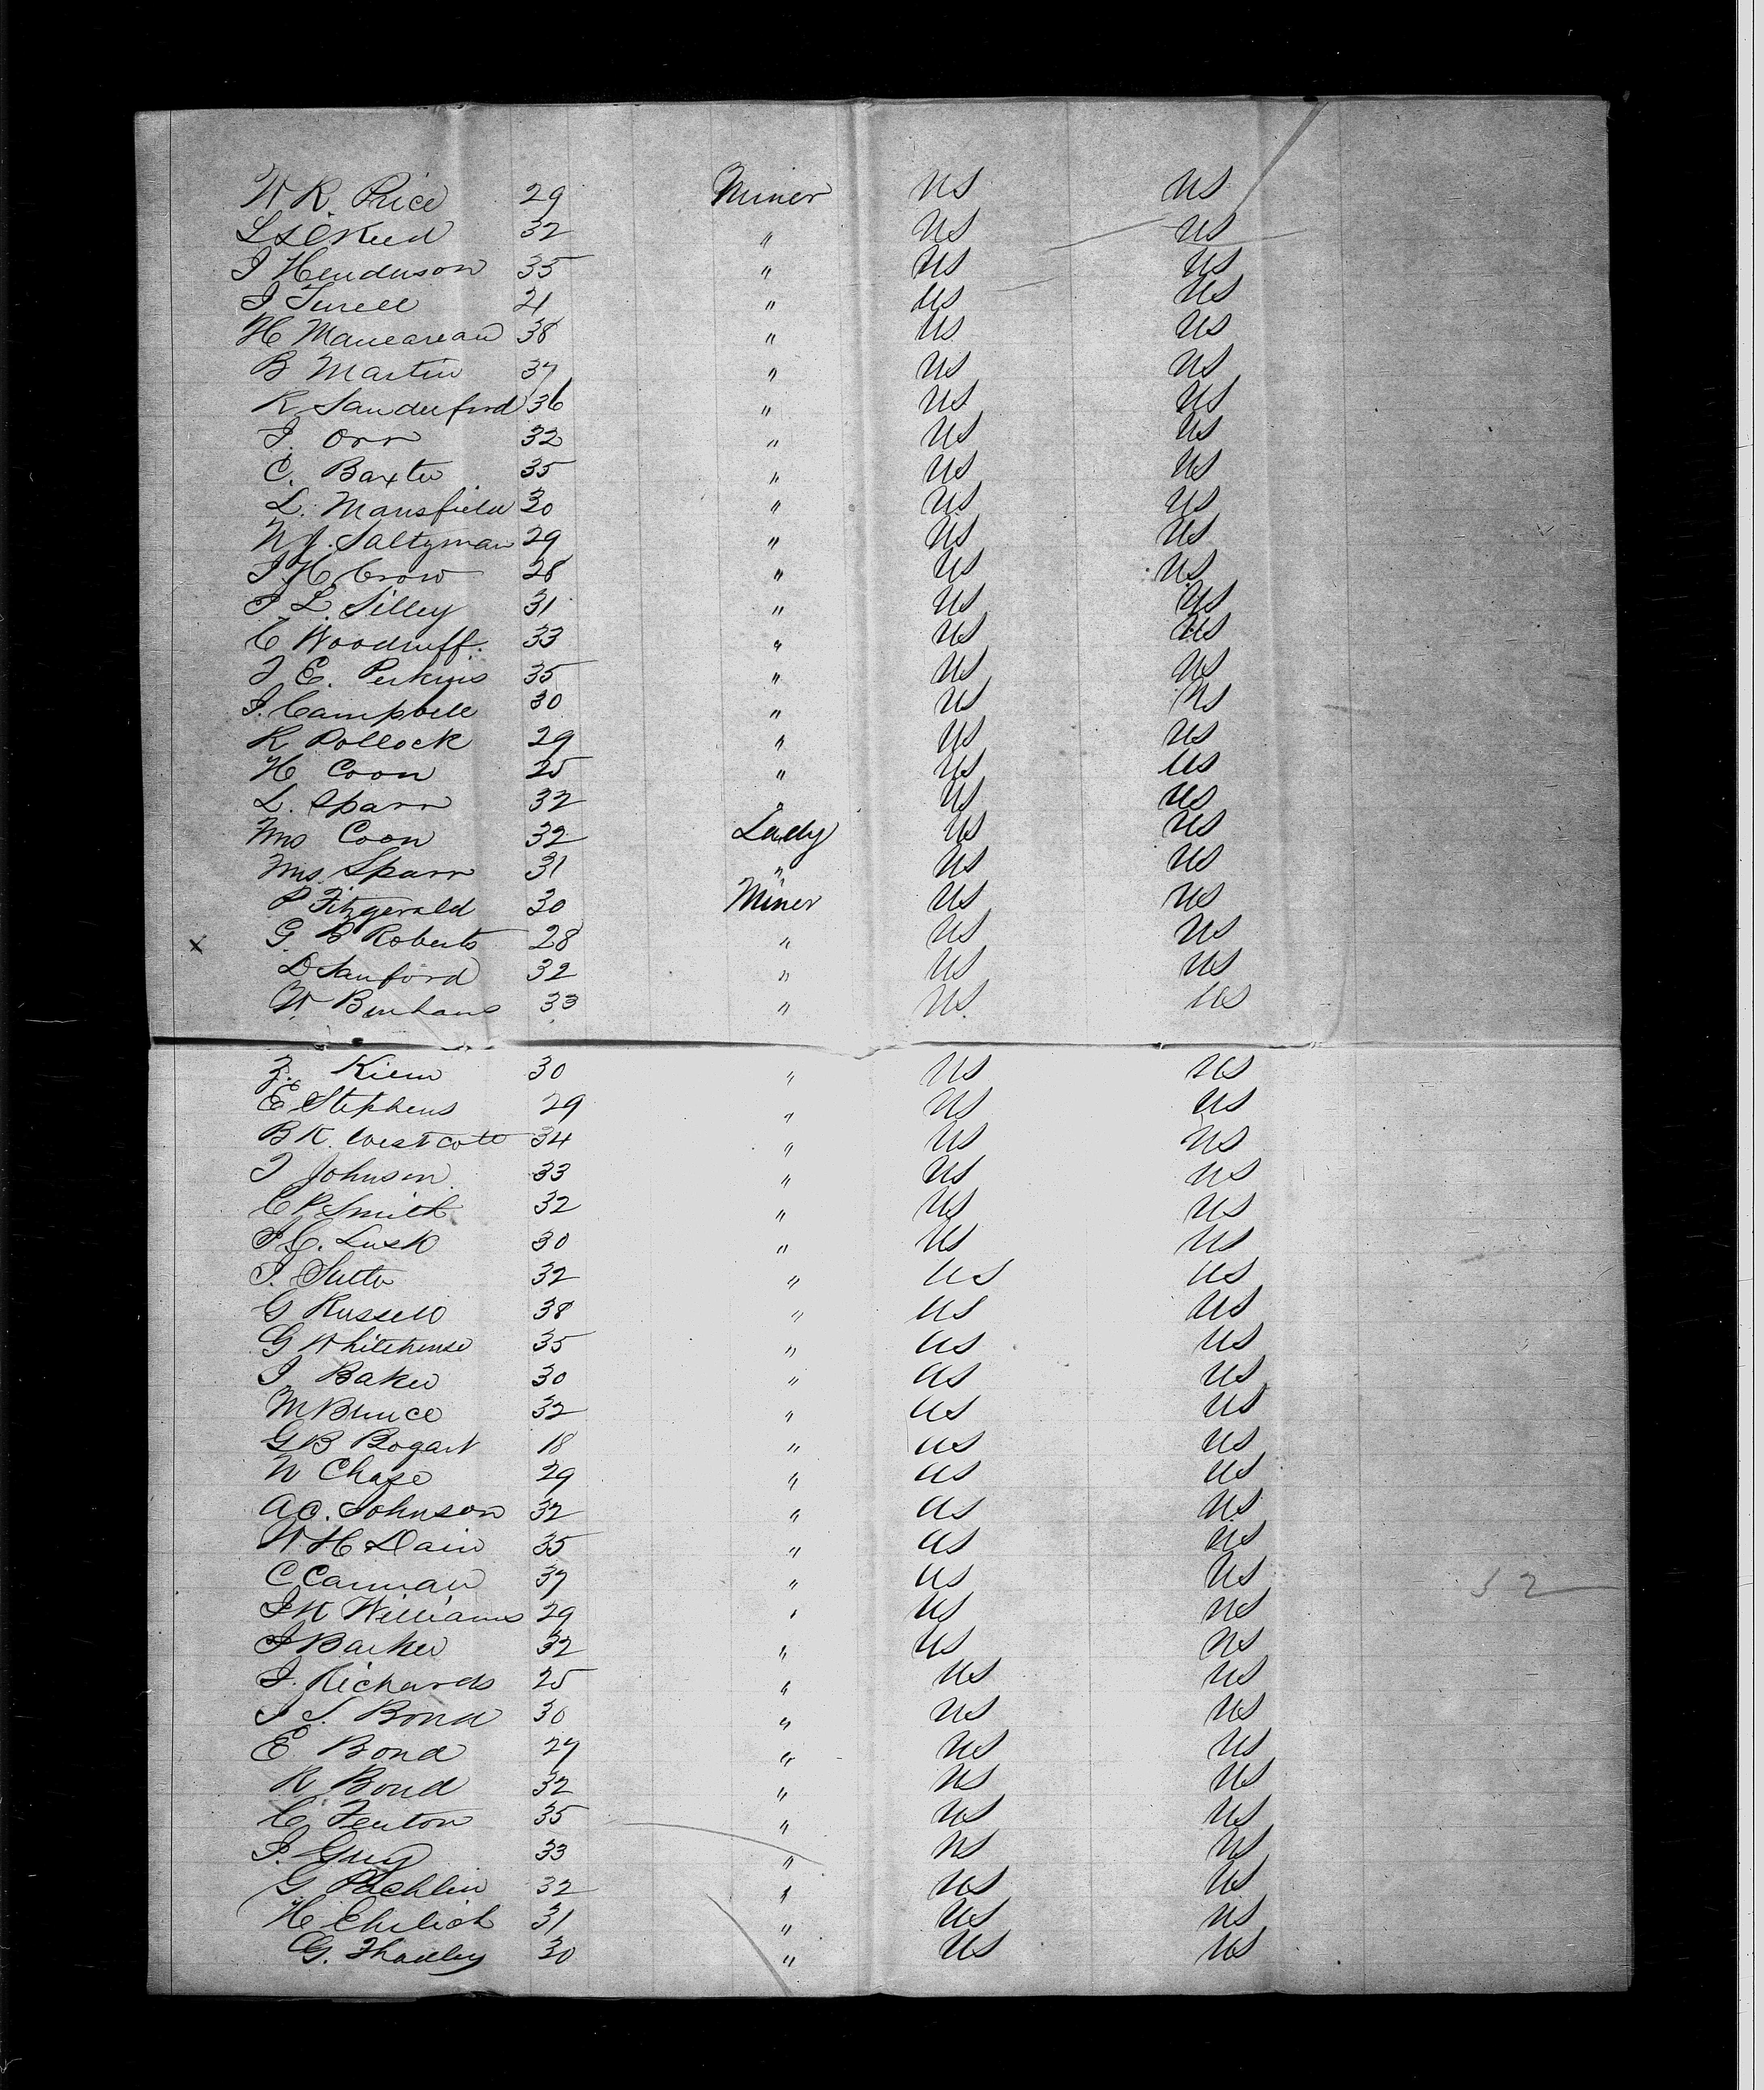 W R. Price 29 Miner US US
L S O Reed 32 " US US
J Henderson 35 " US US
J Turell 21 " US US
H 38 " US US
B Martin 37 " US US
R Sanderford 36 " US US
J. Orr 32 " US US
C. Baxter 35 " US US
L. Mansfield 30 " US US
W J. Saltzman 29 " US US
J H Crow 28 " US US
J L. Silley 31 " US US
C Woodruff. 33 " US US
J E. Perkins 35 " US US
J. Campbell 30 " US US
R Pollock 29 " US US
H Coon 25 " US US
L. Sparr 32 " US US
Mrs Coon 32 Lady US US
Mrs. Sparr 31 " US US
P Fitzgerald 30 Miner US US
x G. B Roberts 28 " US US
D Sanford 32 " US US
W. Benhans 33 " US US
Z. Kiem 30 " US US
E Stephens 29 " US US
B K. Westcott 34 " US US
J Johnson. 33 " US US
C P Smith 32 " US US
J C. Lusk 30 " US US
J. Suter 32 " US US
G Russell 38 " US US
G Whitehouse 35 " US US
J Baker 30 " US US
M Bunce 32 " US US
G B Bogart 18 " US US
W Chase 29 " US US
A C. Johnson 32 " US US
W. H Dain 35 " US US
C Carman 37 " US US
J K Williams 29 " US US
J Barker 32 " US US
J. Richards 25 " US US
J S. Bond 30 " US US
E Bond 27 " US US
R. Bond 32 " US US
C Fenton 35 " US US
J. Guy 33 " US US
G Pachlin 32 " US US
H Ehrlich 31 " US US
G. Thadley 30 " US US
32